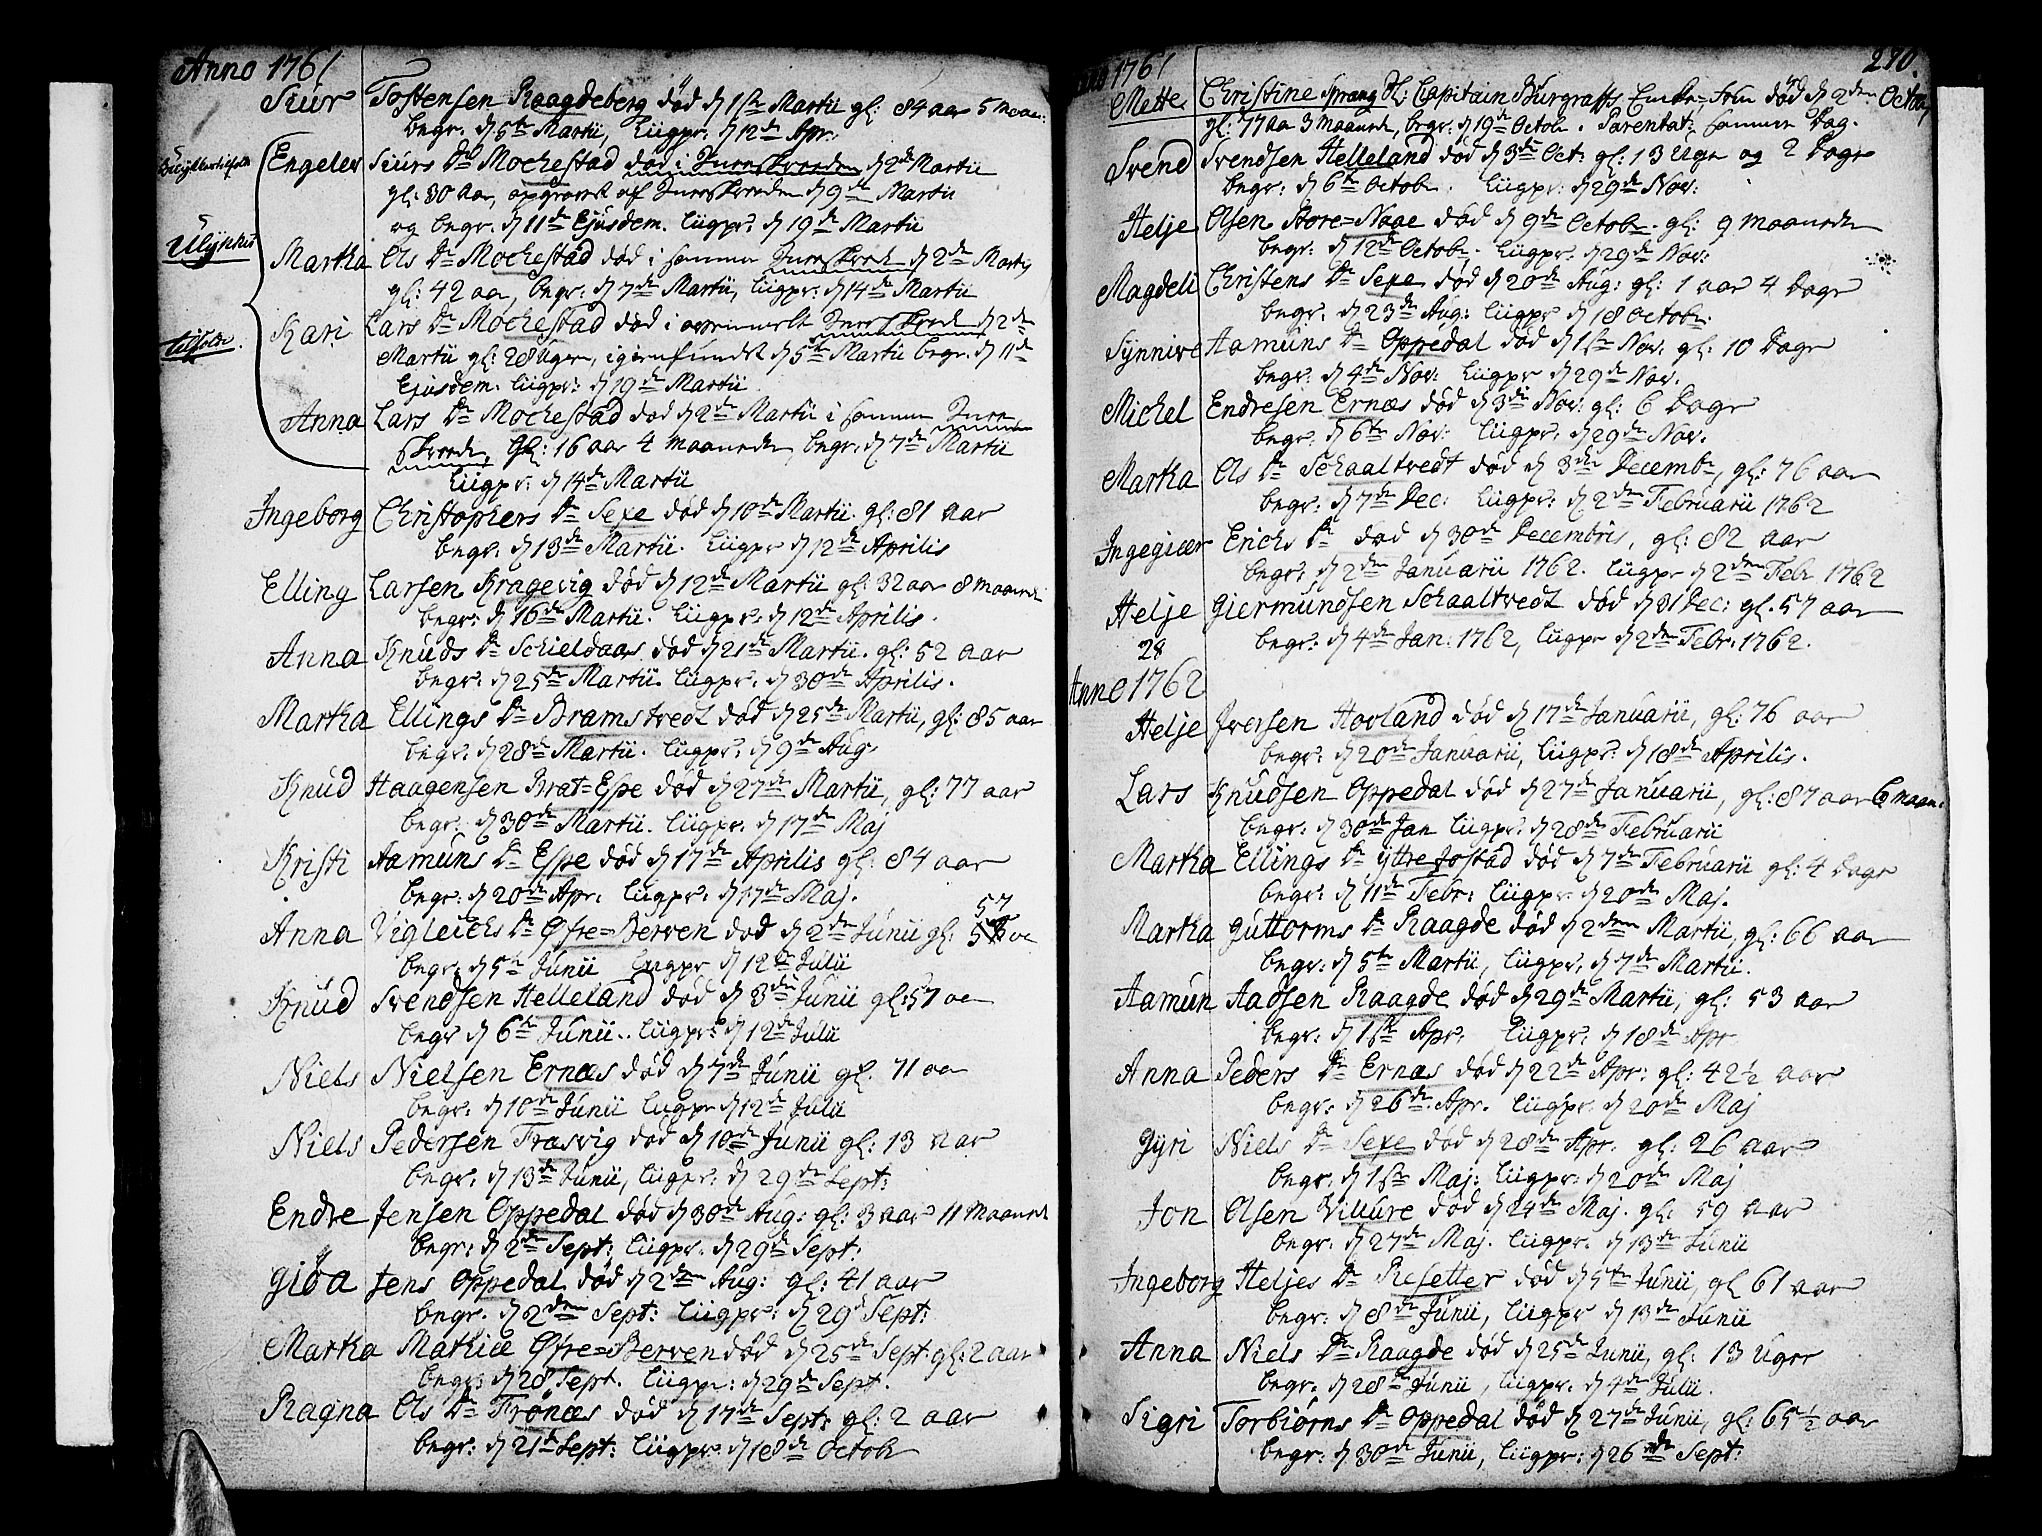 Anno 1761
Siur Tostensen Raagdeberg død d 1ste Martii gl: 84 aar 5 maan:
begr: d 5te Martii, Liigpr: d 12te Apr:
Engelev Siurs Dr Mochestad død i Snee Skreeden d 2den Martii
gl: 30 Aar, opgravet af Snee Skreeden d 9de Martii
og begr. d 11de Ejusdem. Liigpr: d 19de Martii
Ulykkes
tilfelde.
Martha Ols Dr Mochestad død i samme Snee Skreed d 2den Martij
gl: 42 aar, begr: d 7de Martii, Liigpr: d 14de Martii
Kari Lars Dr Mochestad død i Snee Skreed d 2den
Martii gl: 28 Uger, igienfundet d 5te Martii begr. d 11de
Ejusdem. Liigpr: d 19de Martii
Anna Lars Dr Mochestad død d 2den Martii i samme Snee
Skreede, gl: 16 aar 4 maaneder, begr: d 7de Martii
Liigpr: d 14de Martii
Ingeborg Christophers Dr Sexe død d 10de Martii. gl: 81 Aar
begr: d 13de Martii. Liigpr d 12te Aprilis
Elling Larsen Kragevig død d 12te Martii gl: 32 aar 8 maaneder
begr: d 16de Martii. Liigpr: d 12te Aprilis.
Anna Knuds Dr Schieldaas død d 21de Martii. gl: 52 aar
begr: d 25de Martii. Liigpr. d 30de Aprilis.
Martha Ellings Dr Bramstvedt død d 25de Martii, gl: 85 aar
begr: d 28de Martii. Liigpr: d 9de Aug:
Knud Haagensen Brat=Espe død d 27de Martii, gl: 77 aar
begr: d 30de Martii. Liigpr: d 17de Maj
Kristi Aamuns Dr Espe død d 17de Aprilis gl: 84 aar
begr: d 20de Apr: Liigpr: d 17de Maj.
Anna Vigleichs Dr Øfre=Berven død d 2den Junii gl: 57
begr: d 5te Junii Liigpr d 12te Julii
Knud Svendsen Helleland død d 3die Junii gl: 57 aar
begr d 6te Junii. Liigpr: d 12te Julii
Niels Nielsen Ernæs død d 7de Junii gl. 71 aar
begr: d 10de Junii Liigpr d 12te Julii
Niels Pedersen Trasvig død d 10de Junii gl: 13 Aar
begr: d 13de Junii, Liigpr: d 29de Sept:
Endre Jensen Oppedal død d 30de Aug: gl: 3 aar 11 Maaneder
begr: d 2den Sept: Liigpr. d 29de Sept:
Giøa Jens Oppedal død d 2den Aug: gl: 41 aar
begr. d 2den Sept: Liigpr: d 29de Sept:
Martha Mathiæ Øfre=Berven død d 25de Sept: gl: 2 aar
begr: d 28de Sept. Liigpr: d 29de Sept.
Ragna Ols Dr Tronæs død d 17de Sept: gl: 2 aar
begr: d 21de Sept: Liigpr: d 18de Octobr
Anno 1761 270.
Mette Christine Sprang Sl: Capitain Burgraffs Enke=Frue død d 2den Octobr,
gl: 77 Aar 3 maaneder, begr: d 19de Octobr. Parentat: samme Dag.
Svend Svendsen Helleland død d 3die Oct: gl: 13 Uger og 2 Dage
begr: d 6te Octobr. Liigpr: d 29de Nov:
Helje Olsen Store=Naae død d 9de Octobr. gl: 9 maaneder
begr: d 12te Octobr. Liigpr: d 29de Nov:
Magdeli Christens Dr Sexe død d 20de Aug: gl: 1 aar 4 Dage
begr: d 23de Aug: Liigpr d 18 Octobr:
Synnive Aamuns Dr Oppedal død d 1ste Nov: gl: 10 Dage
begr: d 4de Nov: Liigpr d 29de Nov.
Michel Endresen Ernæs død d 3die Nov: gl: 6 Dage
begr. d 6te Nov: Liigpr. d 29de Nov.
Martha Ols Dr Schaaltvedt død d 3die Decembr, gl: 76 aar
begr: d 7de Dec: Liigpr: d 2den Februarii 1762
Ingegier Erichs Dr død d 30de Decembris, gl: 82 aar
begr: d 2den Januarii 1762. Liigpr d 2den Febr 1762
Helje Giermundsen Schaaltvedt død d 31 Dec: gl. 57 aar
begr: d 4de Jan: 1762, Liigpr d 2den Febr: 1762.
28
Anno 1762
Helje Iversen Hovland død d 17de Januarii, gl: 76 aar
begr: d 20de Januarii, Liigpr: d 18de Aprilis.
Lars Knudsen Oppedal død d 27de Januarii, gl: 87 aar 6 maan:
begr: d 30de Jan Liigpr: d 28de Februarii
Martha Ellings Dr Yttre Jostad død d 7de Februarii gl: 4 Dage
begr: d 11te Febr: Liigpr: d 20de Maj.
Martha Guttorms Dr Raagde død d 2den Martii, gl: 66 aar
begr: d 5te Martii, Liigpr: d 7de Martii.
Aamun Aadsen Raagde død d 29de Martii, gl: 53 aar
begr: d 1ste Apr: Liigpr: d 18de Apr
Anna Peders Dr Ernæs død d 22de Apr: gl: 42½ aar
begr: d 26de Apr. Liigpr: d 20de Maj
Gyri Niels Dr Sexe død d 28de Apr. gl: 26 aar
begr: d 1ste Maj: Liigpr: d 20de Maj
Jon Olsen Villure død d 24de Maj. gl: 59 aar
begr: d 27de Maj. Liigpr. d 13de Junii
Ingeborg Heljes Dr Resetter død d 5te Junii, gl 61 aar
begr: d 8de Junii, Liigpr d 13de Junii
Anna Niels Dr Raagde død d 25de Junii, gl: 13 Uger
begr: d 28de Junii, Liigpr. d 4de Julii.
Sigri Torbiørns Dr Oppedal død d 27de Junii, gl: 65½ aar
begr: d 30de Junii, Liigpr: d 26de Sept: